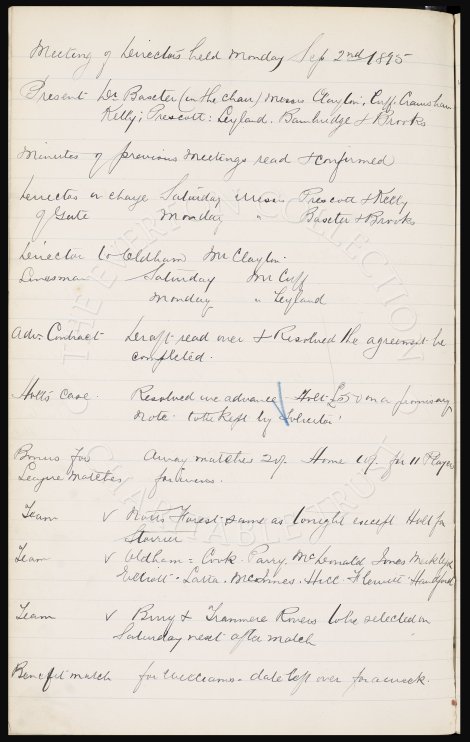 Meeting of Directors held Monday Sep 2nd 1895
Present Dr Baxter (in the chair) Messrs Clayton; Cuff, Crawshaw
Kelly; Prescott: Leyland. Bainbridge & Brooks
Minutes of previous Meetings read & confirmed
Director in charge Saturday Messrs Prescott & Kelly
of Gate Monday " Baxter & Brooks
Director to Oldham Mr Clayton.
Linesman Saturday Mr Cuff
Monday " Leyland
Adv. Contract Draft read over & Resolved the agreement be
completed.
Holts case. Resolved we advance Holt £50 on a promissory
note to be kept by Director
Bonus for Away matches 20/- Home 10/- for 11 Players
League Matches for wins.
Team v Notts Forest same as tonight except Holt for
Storrier
Team v Oldham = Cook. Parry. McDonald Jones Meiklejohn
Elliott. Latta. McInnes. Hill Flewitt Handford
Team v Bury & Tranmere Rovers to be selected on
Saturday next after match
Benefit match for Williams - date left over for a week.
THE EVERTON COLLECTION
CHARITABLE TRUST